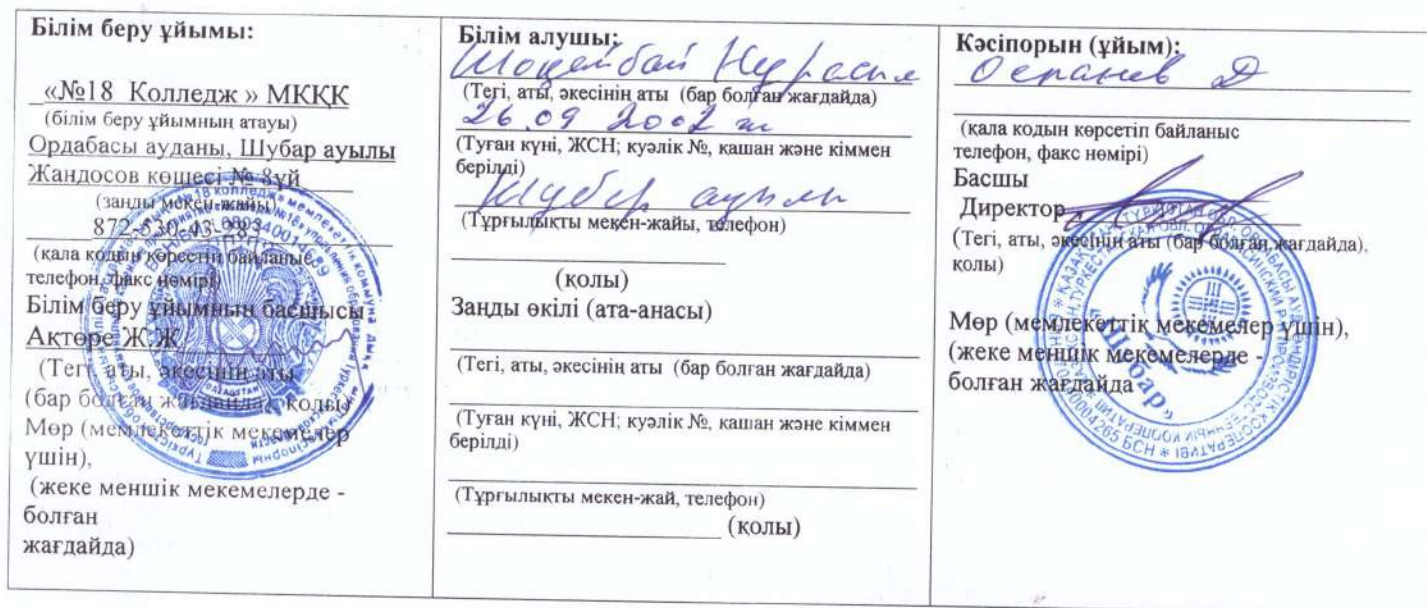 Білім беру ұйымы:
«№18 Колледж » МКҚК
(білім беру ұйымның атауы)
Ордабасы ауданы, Шубар ауылы
Жандосов көшесі № 8үй
(заңды мекен-жайы)
872-530-43-083
(қала кодын көрсетіп байланыс
телефон, факс нөмірі)
Білім беру ұйымның басшысы
Ақтөре Ж.Ж
(Тегі, аты, әкесінің аты
(бар болған жағдайда), қолы)
Мөр (мемлекеттік мекемелер
үшін),
(жеке меншік мекемелерде -
болған
жағдайда)
Білім алушы:
Нурасыл
(Тегі, аты, әкесінің аты (бар болған жағдайда)
26.09 2002 ж
(Туған күні, ЖСН; куәлік №, қашан және кіммен
берілді)
Шубар ауылы
(Тұрғылықты мекен-жайы, телефон)
(қолы)
Заңды өкілі (ата-анасы)
(Тегі, аты, әкесінің аты (бар болған жағдайда)
(Туған күні, ЖСН; куәлік №, қашан және кіммен
берілді)
(Тұрғылықты мекен-жай, телефон)
(қолы)
Кәсіпорын (ұйым):
Оспанов Д
(қала кодын көрсетіп байланыс
телефон, факс нөмірі)
Басшы
Директор
(Тегі, аты, әкесінің аты (бар болған жағдайда),
қолы)
Мөр (мемлекеттік мекемелер үшін),
(жеке меншік мекемелерде -
болған жағдайда
"Шубар"